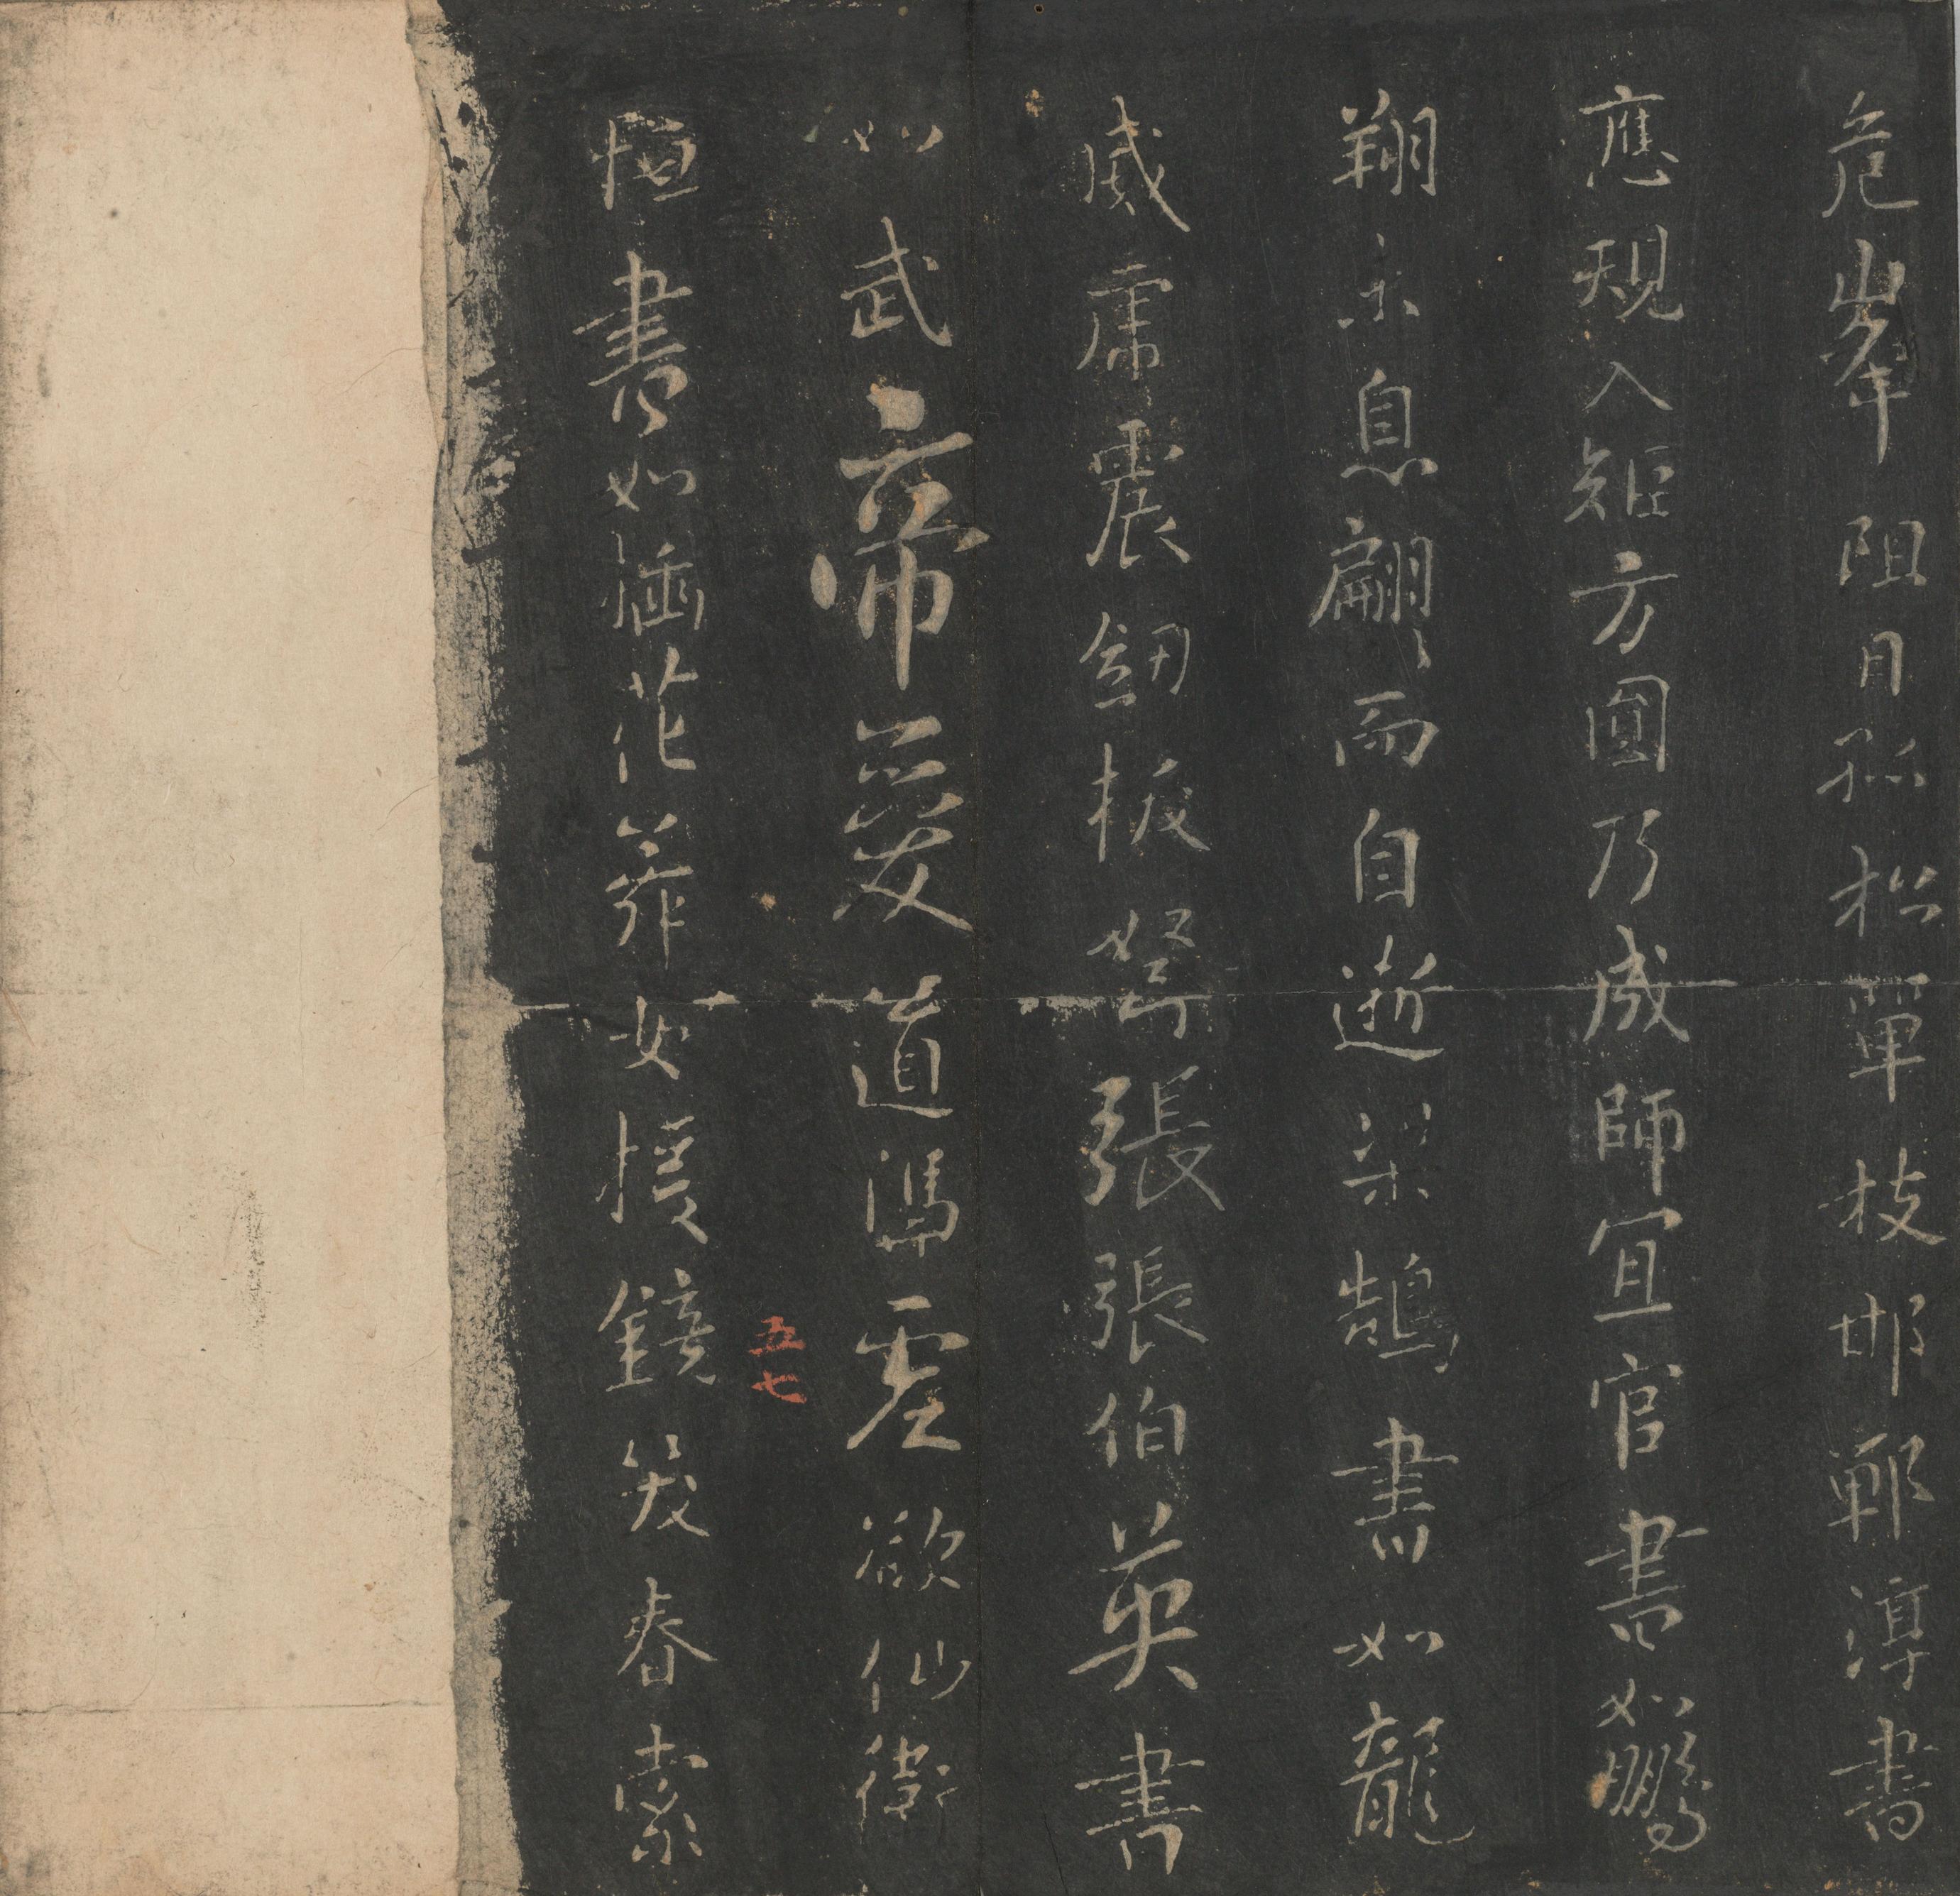 危峯阻日孤松單枝邯鄲淳書
應規入矩方圓乃成師宜官書如鵬
翔未息翩々而自逝梁鵠書如龍
威虎震劔拔弩張張伯英書
如武帝愛道馮虛欲仙衛
恒書如插花舞女援鏡笑春索
五七